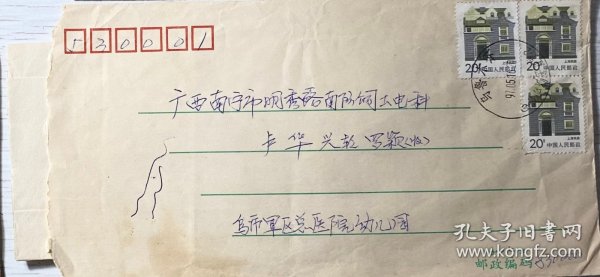 530001
20分
上海民居
中国人民邮政
20分
上海民居
中国人民邮政
20分
上海民居
中国人民邮政
乌鲁木齐
广西南宁市明秀路南防饲土电科
卢华兴赴 罗颖(收)
乌市军区总医院幼儿园
邮政编码
孔夫子旧书网
www.kongfz.com